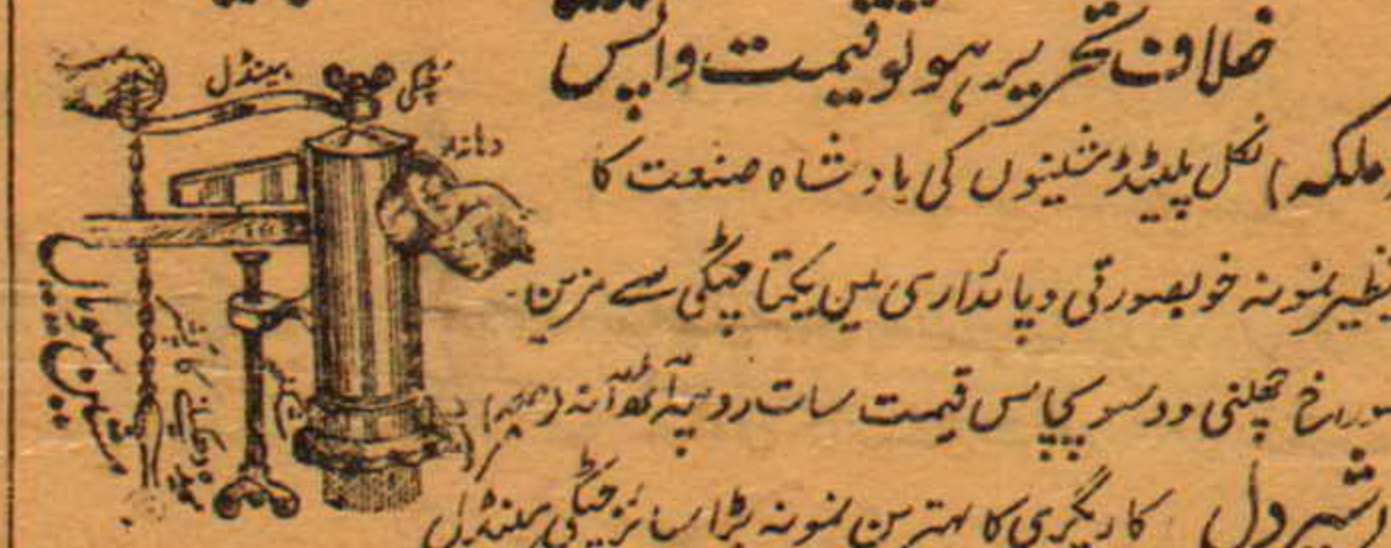 خلاف تحریر ہو تو قیمت واپس
(ملکہ) نکل پلیٹڈ مشینوں کی بادشاہ صنعت کا
نظیر نمونہ خوبصورتی و پائداری میں یکتا چٹکی سے مزین۔
سوراخ چھلنی دو سو پچاس قیمت سات روپیہ آٹھ آنہ
شیر دل کاریگری کا بہترین نمونہ بڑا سائز چٹکی ہینڈل
ہینڈل
چٹکی
دہانہ
مشین سویاں